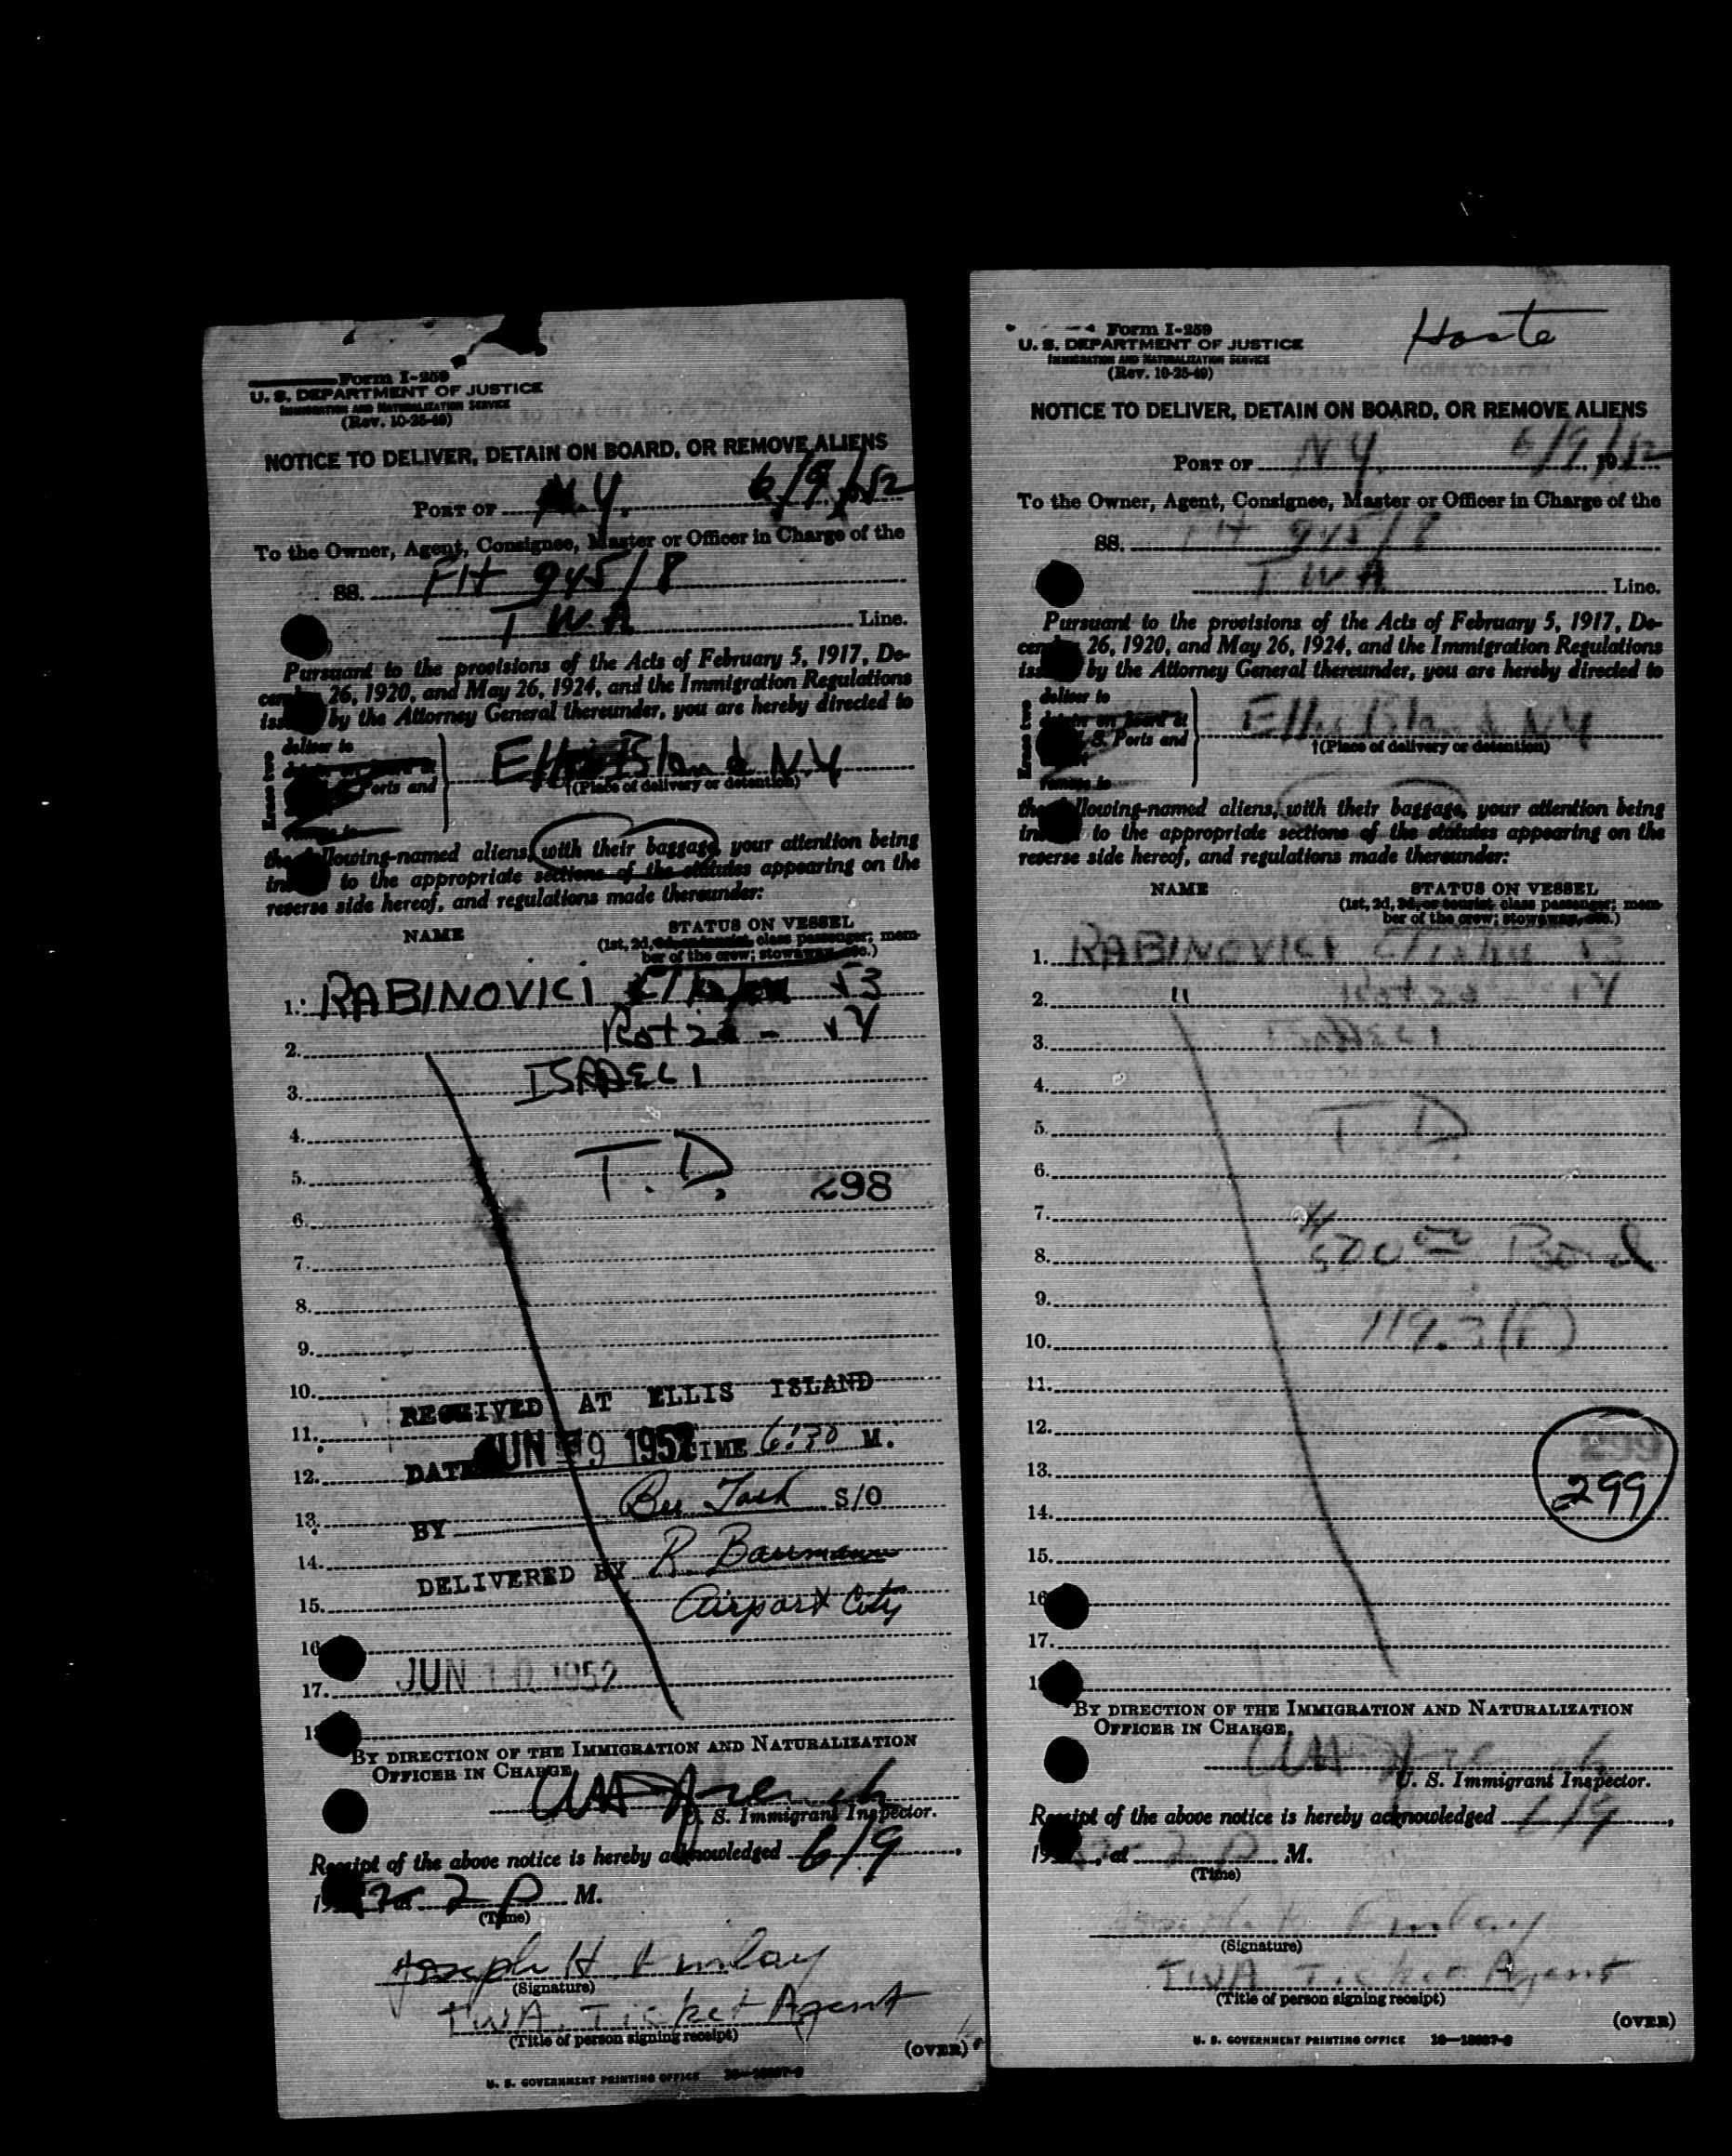 Form I-259
U. S. DEPARTMENT OF JUSTICE
IMMIGRATION AND NATURALIZATION SERVICE
(Rev. 10-25-49)
NOTICE TO DELIVER, DETAIN ON BOARD, OR REMOVE ALIENS
PORT OF N.Y. 6/9/52
To the Owner, Agent, Consignee, Master or Officer in Charge of the
SS. Flt 945/8
TWA Line.
Pursuant to the provisions of the Acts of February 5, 1917, De-
26, 1920, and May 26, 1924, and the Immigration Regulations
by the Attorney General thereunder, you are hereby directed to
Erase two
deliver to
Ports and
Ellis Island N.Y.
†(Place of delivery or detention)
the following-named aliens, with their baggage, your attention being
to the appropriate sections of the statutes appearing on the
reverse side hereof, and regulations made thereunder:
NAME STATUS ON VESSEL
(1st, 2d, 3d, or tourist, class passenger; mem-
ber of the crew; stowaway, etc.)
1. RABINOVICI √3
2. - √4
3. ISRAELI
4.
5. T.D. 298
6.
7.
8.
9.
10.
RECEIVED AT ELLIS ISLAND
11.
DATE JUN 9 1952 TIME 6:30 M.
12.
13. BY S/O
14. DELIVERED BY R. Baumann
15. Airport City
16.
17. JUN 10 1952
BY DIRECTION OF THE IMMIGRATION AND NATURALIZATION
OFFICER IN CHARGE,
French
U. S. Immigrant Inspector.
Receipt of the above notice is hereby acknowledged 6/9,
1952 at 2 P M.
(Time)
Joseph H.
(Signature)
TWA Ticket Agent
(Title of person signing receipt)
(OVER)
U. S. GOVERNMENT PRINTING OFFICE
Form I-259
U. S. DEPARTMENT OF JUSTICE
IMMIGRATION AND NATURALIZATION SERVICE
(Rev. 10-25-49)
NOTICE TO DELIVER, DETAIN ON BOARD, OR REMOVE ALIENS
PORT OF N.Y. 6/9/52
To the Owner, Agent, Consignee, Master or Officer in Charge of the
SS. Flt 945/8
TWA Line.
Pursuant to the provisions of the Acts of February 5, 1917, De-
26, 1920, and May 26, 1924, and the Immigration Regulations
by the Attorney General thereunder, you are hereby directed to
Erase two
deliver to
detain on board at
U. S. Ports and
remove to
Ellis Island N.Y.
†(Place of delivery or detention)
the following-named aliens, with their baggage, your attention being
to the appropriate sections of the statutes appearing on the
reverse side hereof, and regulations made thereunder:
NAME STATUS ON VESSEL
(1st, 2d, 3d, or tourist, class passenger; mem-
ber of the crew; stowaway, etc.)
1. RABINOVICI √3
2. " - √4
3. ISRAELI
4.
5. T.D.
6.
7.
8. 500.00 Bond
9.
10. 119.3(F)
11.
12.
13.
299
14.
15.
16.
17.
BY DIRECTION OF THE IMMIGRATION AND NATURALIZATION
OFFICER IN CHARGE,
French
U. S. Immigrant Inspector.
Receipt of the above notice is hereby acknowledged 6/9,
1952, at 2 P M.
(Time)
Joseph H.
(Signature)
TWA Ticket Agent
(Title of person signing receipt)
(OVER)
U. S. GOVERNMENT PRINTING OFFICE